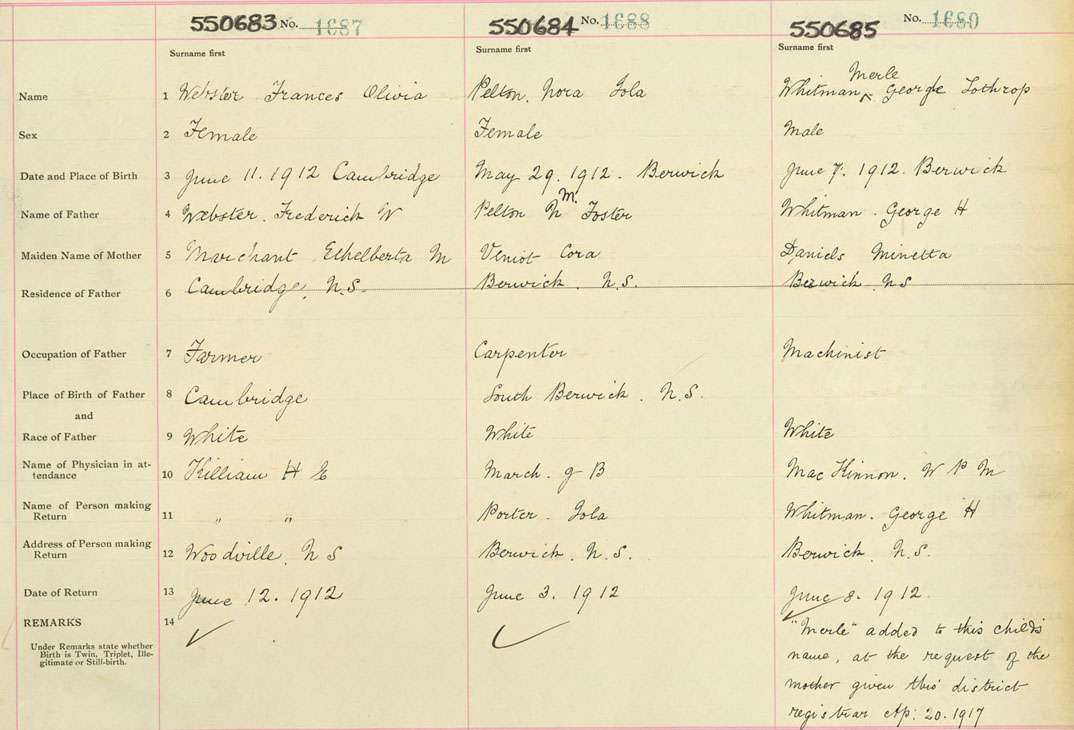 550683 No. 1687 550684 No. 1688 550685 No. 1689
Surname first Surname first Surname first
Merle
Name 1 Webster Frances Olivia Pelton. Nora Iola Whitman ^ George Lothrop
Sex 2 Female Female Male
Date and Place of Birth 3 June 11. 1912 Cambridge May 29. 1912. Berwick June 7. 1912. Berwick
M.
Name of Father 4 Webster. Frederick W Pelton N Foster Whitman. George H
Maiden Name of Mother 5 Marchant Ethelberta M Veniot Cora Daniels Minetta
Residence of Father 6 Cambridge, N.S. Berwick. N.S. Berwick N S
Occupation of Father 7 Farmer Carpenter Machinist
Place of Birth of Father 8 Cambridge South Berwick. N.S.
and
Race of Father 9 White White White
Name of Physician in at-
tendance 10 Killiam H E March. J B Mac Kinnon. W P M
Name of Person making
Return 11 " " Porter Iola Whitman. George H
Address of Person making
Return 12 Woodville. N S Berwick. N.S. Berwick. N.S.
Date of Return 13 June 12. 1912 June 3. 1912 June 8. 1912.
REMARKS 14
Under Remarks state whether
Birth is Twin, Triplet, Ille-
gitimate or Still-birth.
"Merle" added to this child's
name, at the request of the
mother given this district
registrar Ap. 20. 1917